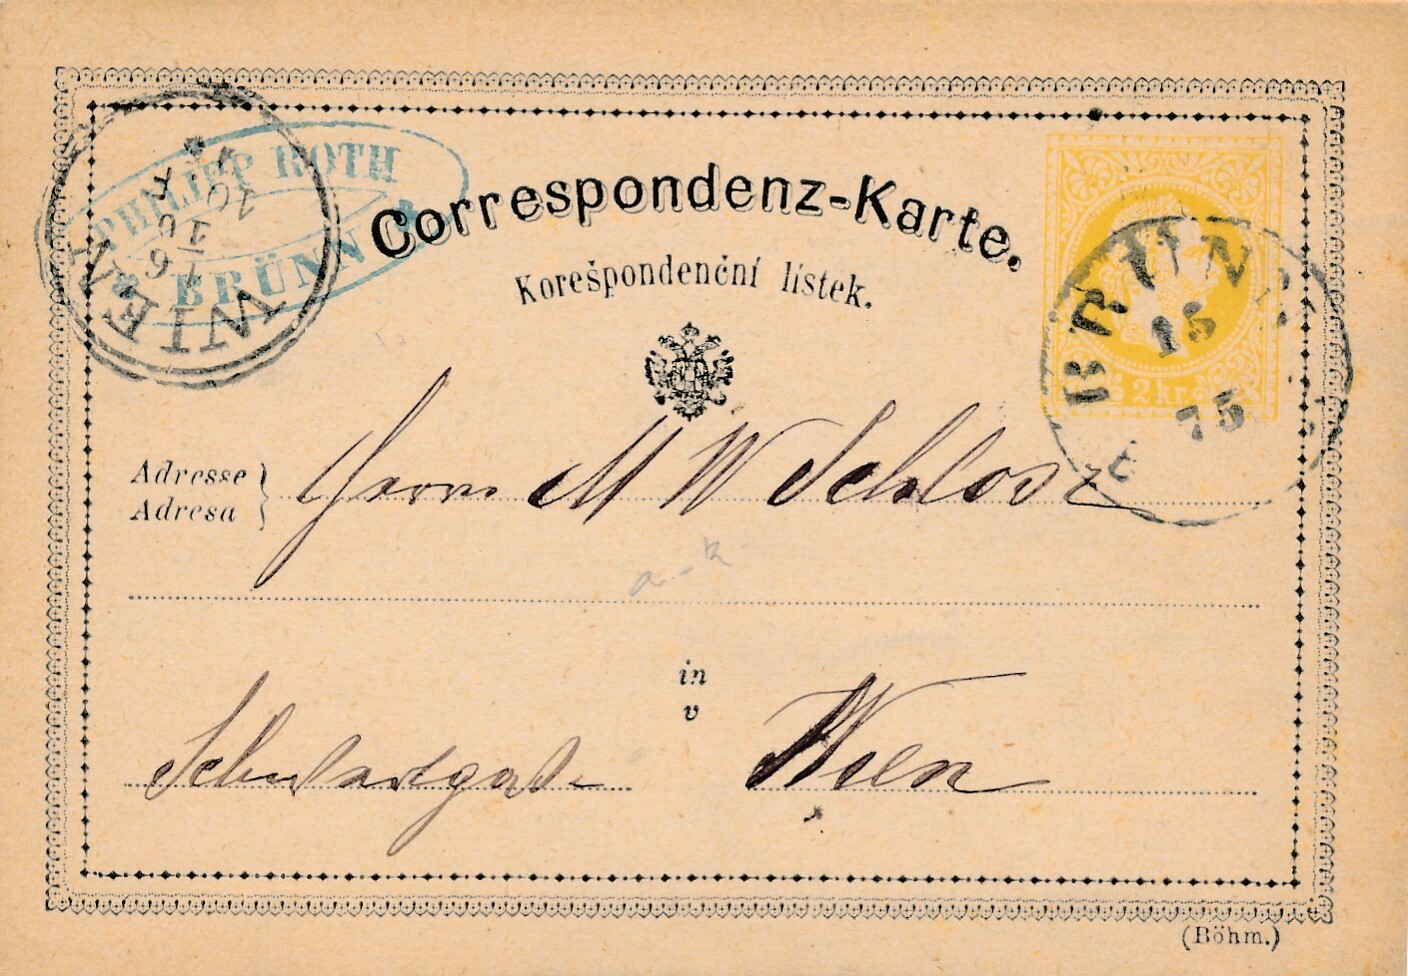 PHILIPP ROTH
BRÜNN
WIEN
16
10
Correspondenz-Karte.
Korešpondenční lístek.
BRÜNN
15
75
2 kr.
Adresse
Adresa
Herrn M W Schlosz
a-k
in
v
Wien
(Böhm.)